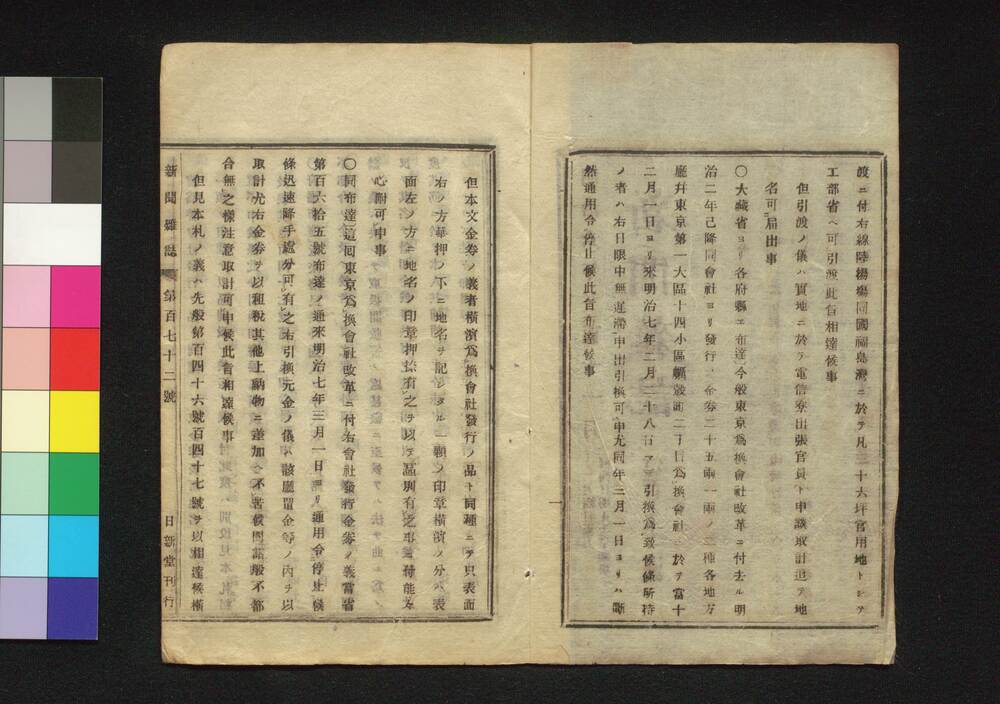 渡ニ付右線陸揚場同國福島灣ニ於テ凡三十六坪官用地トシテ
工部省ヘ可引渡此旨相達候事
但引渡ノ儀ハ實地ニ於テ電信寮出張官員ト申談取計追テ地
名可屆出事
〇大藏省ヨリ各府縣エ布達今般東京爲換會社改革ニ付去ル明
治二年已降同會社ヨリ發行ノ金券二十五兩一兩ノ二種各地方
廳幷東京第一大區十四小區蠣殼町二丁目爲換會社ニ於テ當十
二月一日ヨリ來明治七年二月二十八日マテ引換爲致候條所持
ノ者ハ右日限中無遲滯申出引換可申尤同年三月一日ヨリハ斷
然通用令停止候此旨布達候事
但本文金券ノ義者橫濱爲換會社發行ノ品ト同種ニテ只表面
右ノ方華押ノ下ニ地名ヲ記シタル一顆ノ印章橫濱ノ分ハ表
面左ノ方ニ地名ノ印章押捺有之ヲ以テ區別有之事ニ付能々
心附可申事
〇同布達這囘東京爲換會社改革ニ付右會社發行金券ノ義當省
第百六拾五號布達ノ通來明治七年三月一日ヨリ通用令停止候
條迅速降手處分可有之右引換元金ノ儀ハ該廳置金等ノ內ヲ以
取計尤右金券ヲ以租稅其他上納物ニ差加ヘ不苦候間諸般不都
合無之樣注意取計可申候此旨相達候事
但見本札ノ義ハ先般第百四十六號百四十七號ヲ以相達候橫
新聞雜誌 第百七十二號 日新堂刊行